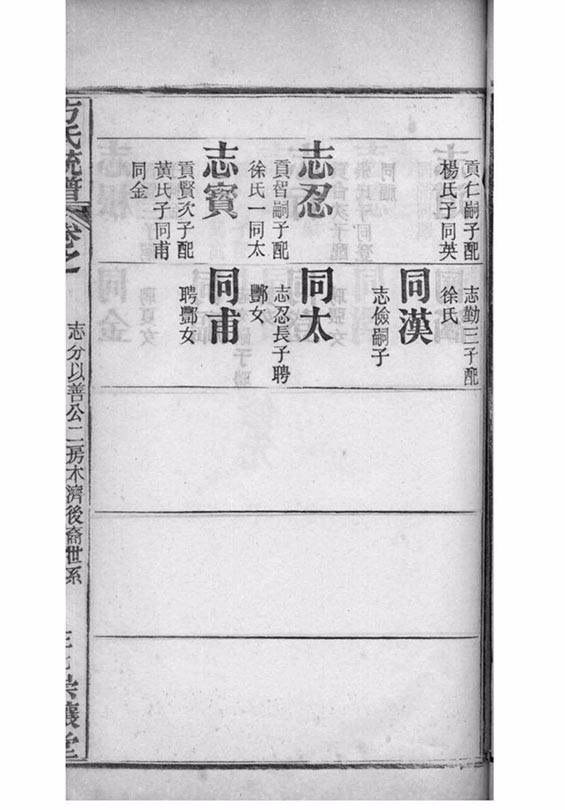 貢仁嗣子配
楊氏子同英
志忍
貢智嗣子配
徐氏一同太
志賓
貢賢次子配
黃氏子同甫
同金
志勤三子配
徐氏
同漢
志儉嗣子
同太
志忍長子聘
酆女
同甫
聘酆女
方氏統譜
卷之
志分以善公二房木濟後裔世系